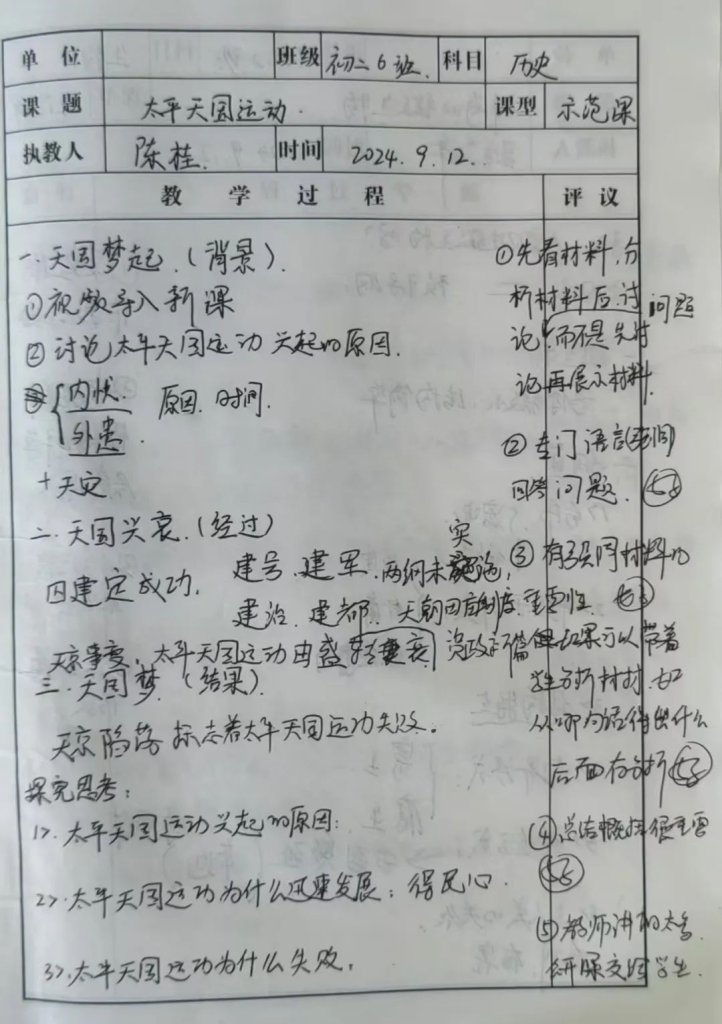 单位 班级 初二6班. 科目 历史
课题 太平天国运动. 课型 示范课
执教人 陈桂. 时间 2024.9.12.
教学过程 评议
一.天国梦起.(背景).
①视频导入新课
②讨论太平天国运动兴起的原因.
内忧.
外患.
原因.时间.
+天灾
二.天国兴衰.(经过)
建号、建军、两纲未实施,
建治、建都、天朝田亩制度.
天京事变,太平天国运动由盛转衰
三.天国梦.(结果).
天京陷落标志着太平天国运动失败。
探究思考:
1>.太平天国运动兴起的原因:
2>.太平天国运动为什么迅速发展:得民心.
3>.太平天国运动为什么失败.
①先看材料,分
析材料后,讨问题
论,而不是先讨
论再展示材料.
②专门语言
回答问题.
③有强调材料的
重要性.
从哪句话得出什么
后面在分析
④总结概括很重要
⑤教师讲的太多.